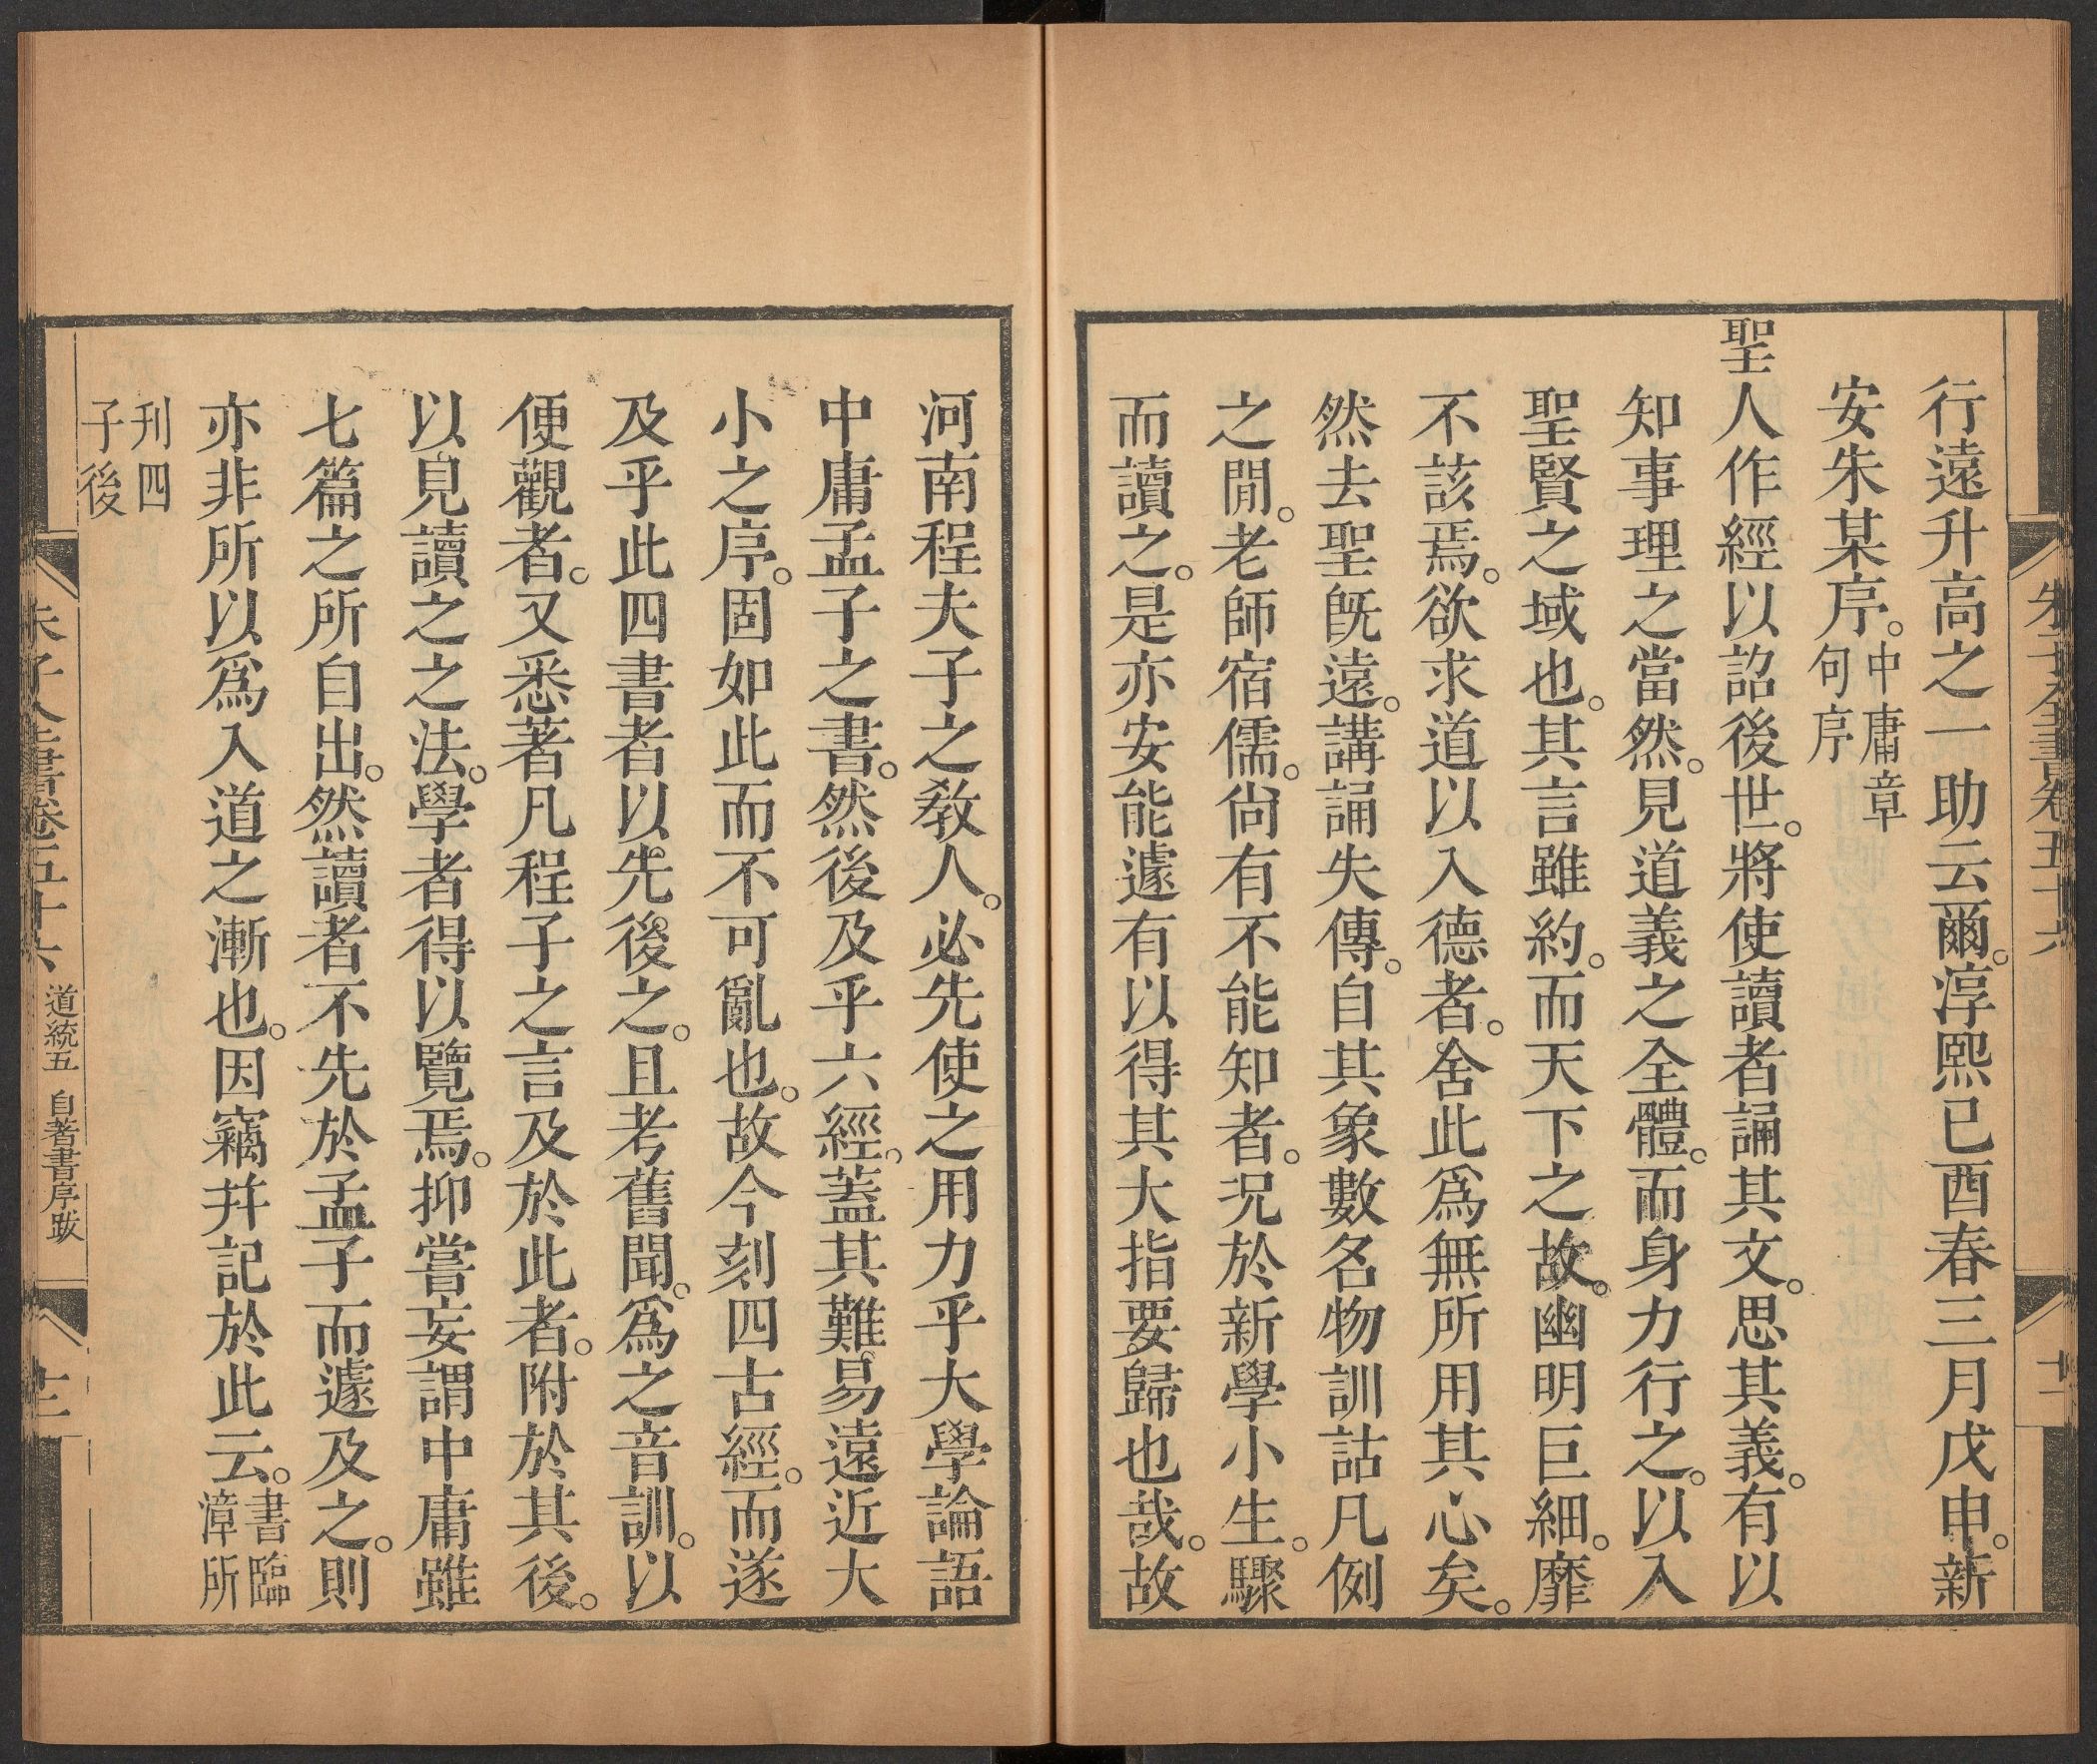 行遠升高之一助云爾。淳熙已酉春三月戊申。新
安朱某序。中庸章句序
聖人作經以詔後世。將使讀者誦其文。思其義。有以
知事理之當然。見道義之全體。而身力行之。以入
聖賢之域也。其言雖約。而天下之故。幽明巨細。靡
不該焉。欲求道以入德者。舍此爲無所用其心矣。
然去聖旣遠。講誦失傳。自其象數名物訓詁凡例
之閒。老師宿儒。尙有不能知者。況於新學小生。驟
而讀之。是亦安能遽有以得其大指要歸也哉。故
河南程夫子之敎人。必先使之用力乎大學論語
中庸孟子之書。然後及乎六經。蓋其難易遠近大
小之序。固如此而不可亂也。故今刻四古經。而遂
及乎此四書者以先後之。且考舊聞。爲之音訓。以
便觀者。又悉著凡程子之言及於此者。附於其後。
以見讀之之法。學者得以覽焉。抑嘗妄謂中庸雖
七篇之所自出。然讀者不先於孟子而遽及之。則
亦非所以爲入道之漸也。因竊幷記於此云。書臨漳所
刊四子後
朱子全書卷五十六 道統五 自著書序跋